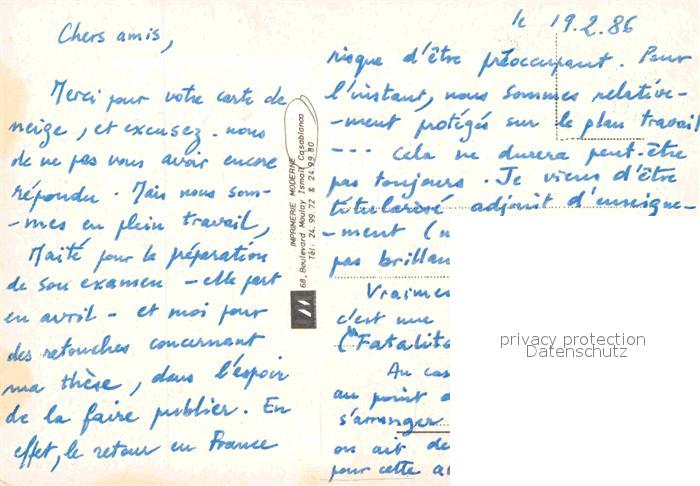 Chers amis,
Merci pour votre carte de
neige, et excusez-nous
de ne pas vous avoir encore
répondu. Mais nous som-
-mes en plein travail,
Maïté pour la préparation
de son examen - elle part
en avril - et moi pour
des retouches concernant
ma thèse, dans l'espoir
de la faire publier. En
effet, le retour en France
IMPRIMERIE MODERNE
68, Boulevard Moulay Ismaïl Casablanca
Tél: 24.99.72 & 24.99.80
le 19.2.86
risque d'être préoccupant. Pour
l'instant, nous sommes relative-
-ment protégés sur le plan travail
--- Cela ne durera peut-être
pas toujours. Je viens d'être
titularisé adjoint d'enseigne-
-ment (
pas brillan
Vraimen
c'est une
("Fatalita
Au cas
au point d
s'arranger
on ait de
pour cette a
privacy protection
Datenschutz